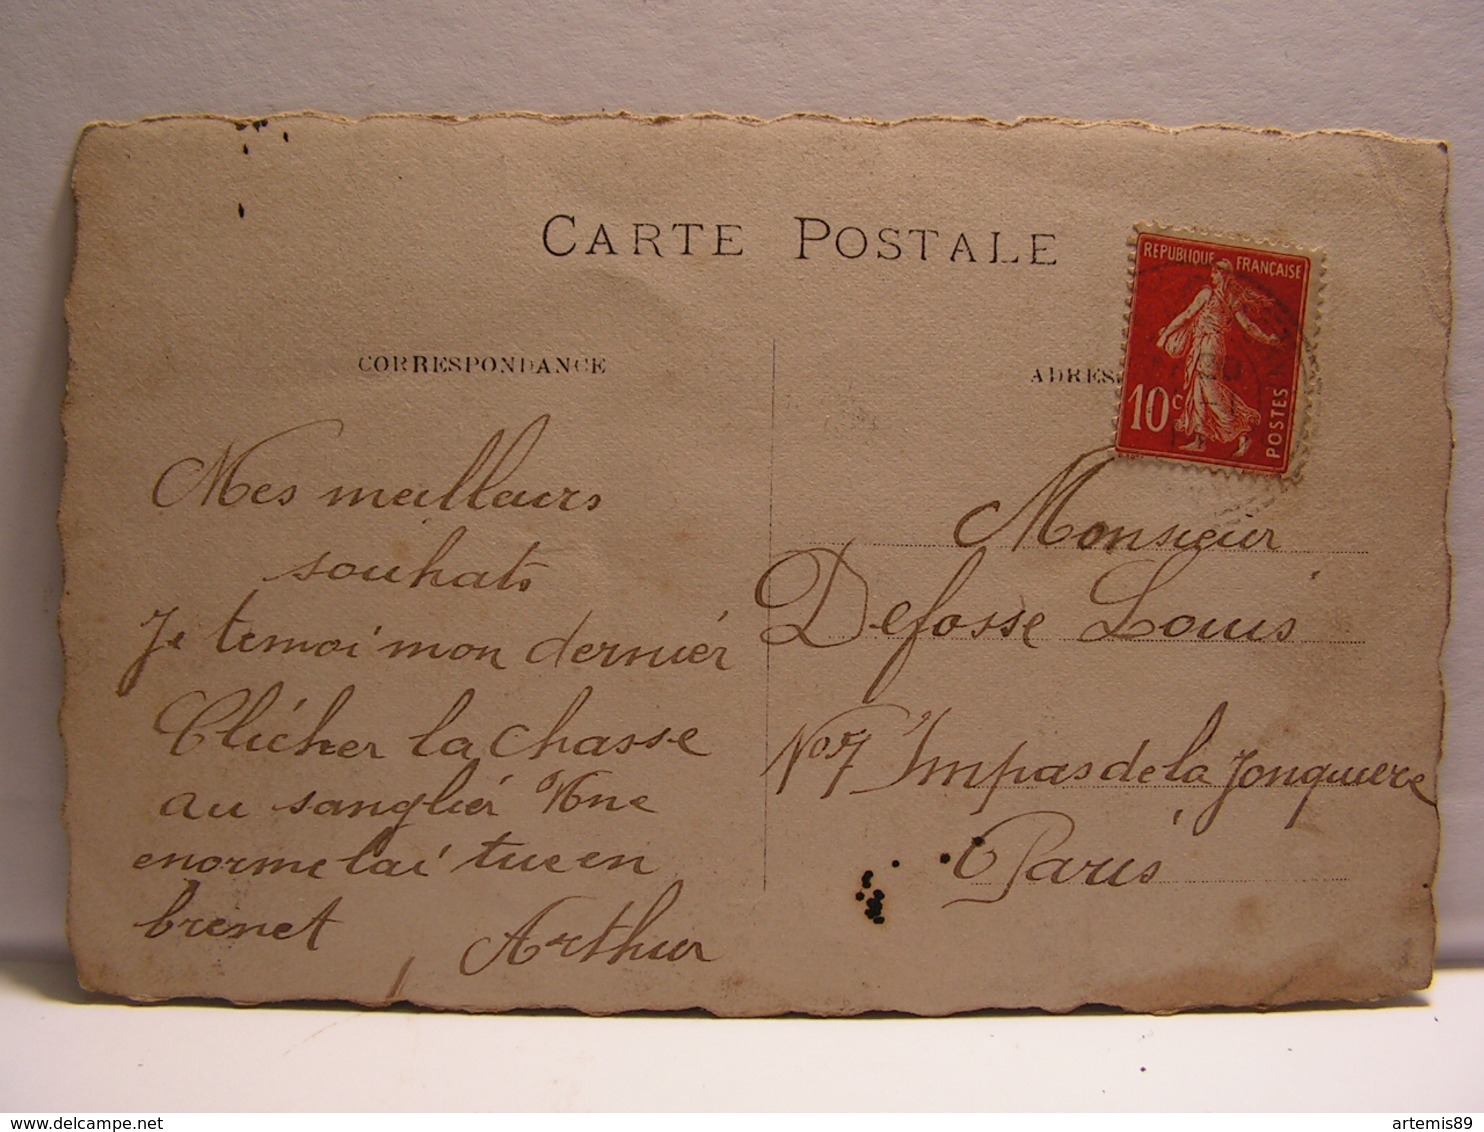 CARTE POSTALE
CORRESPONDANCE
ADRES
REPUBLIQUE FRANÇAISE
10c
POSTES
Mes meilleurs
souhats
Je temoi mon dernier
Clicher la chasse
au sanglier Une
enorme lai tue en
brenet
Arthur
Monsieur
Defosse Louis
No 7 Impas de la Jonquiere
Paris
delcampe.net
artemis89